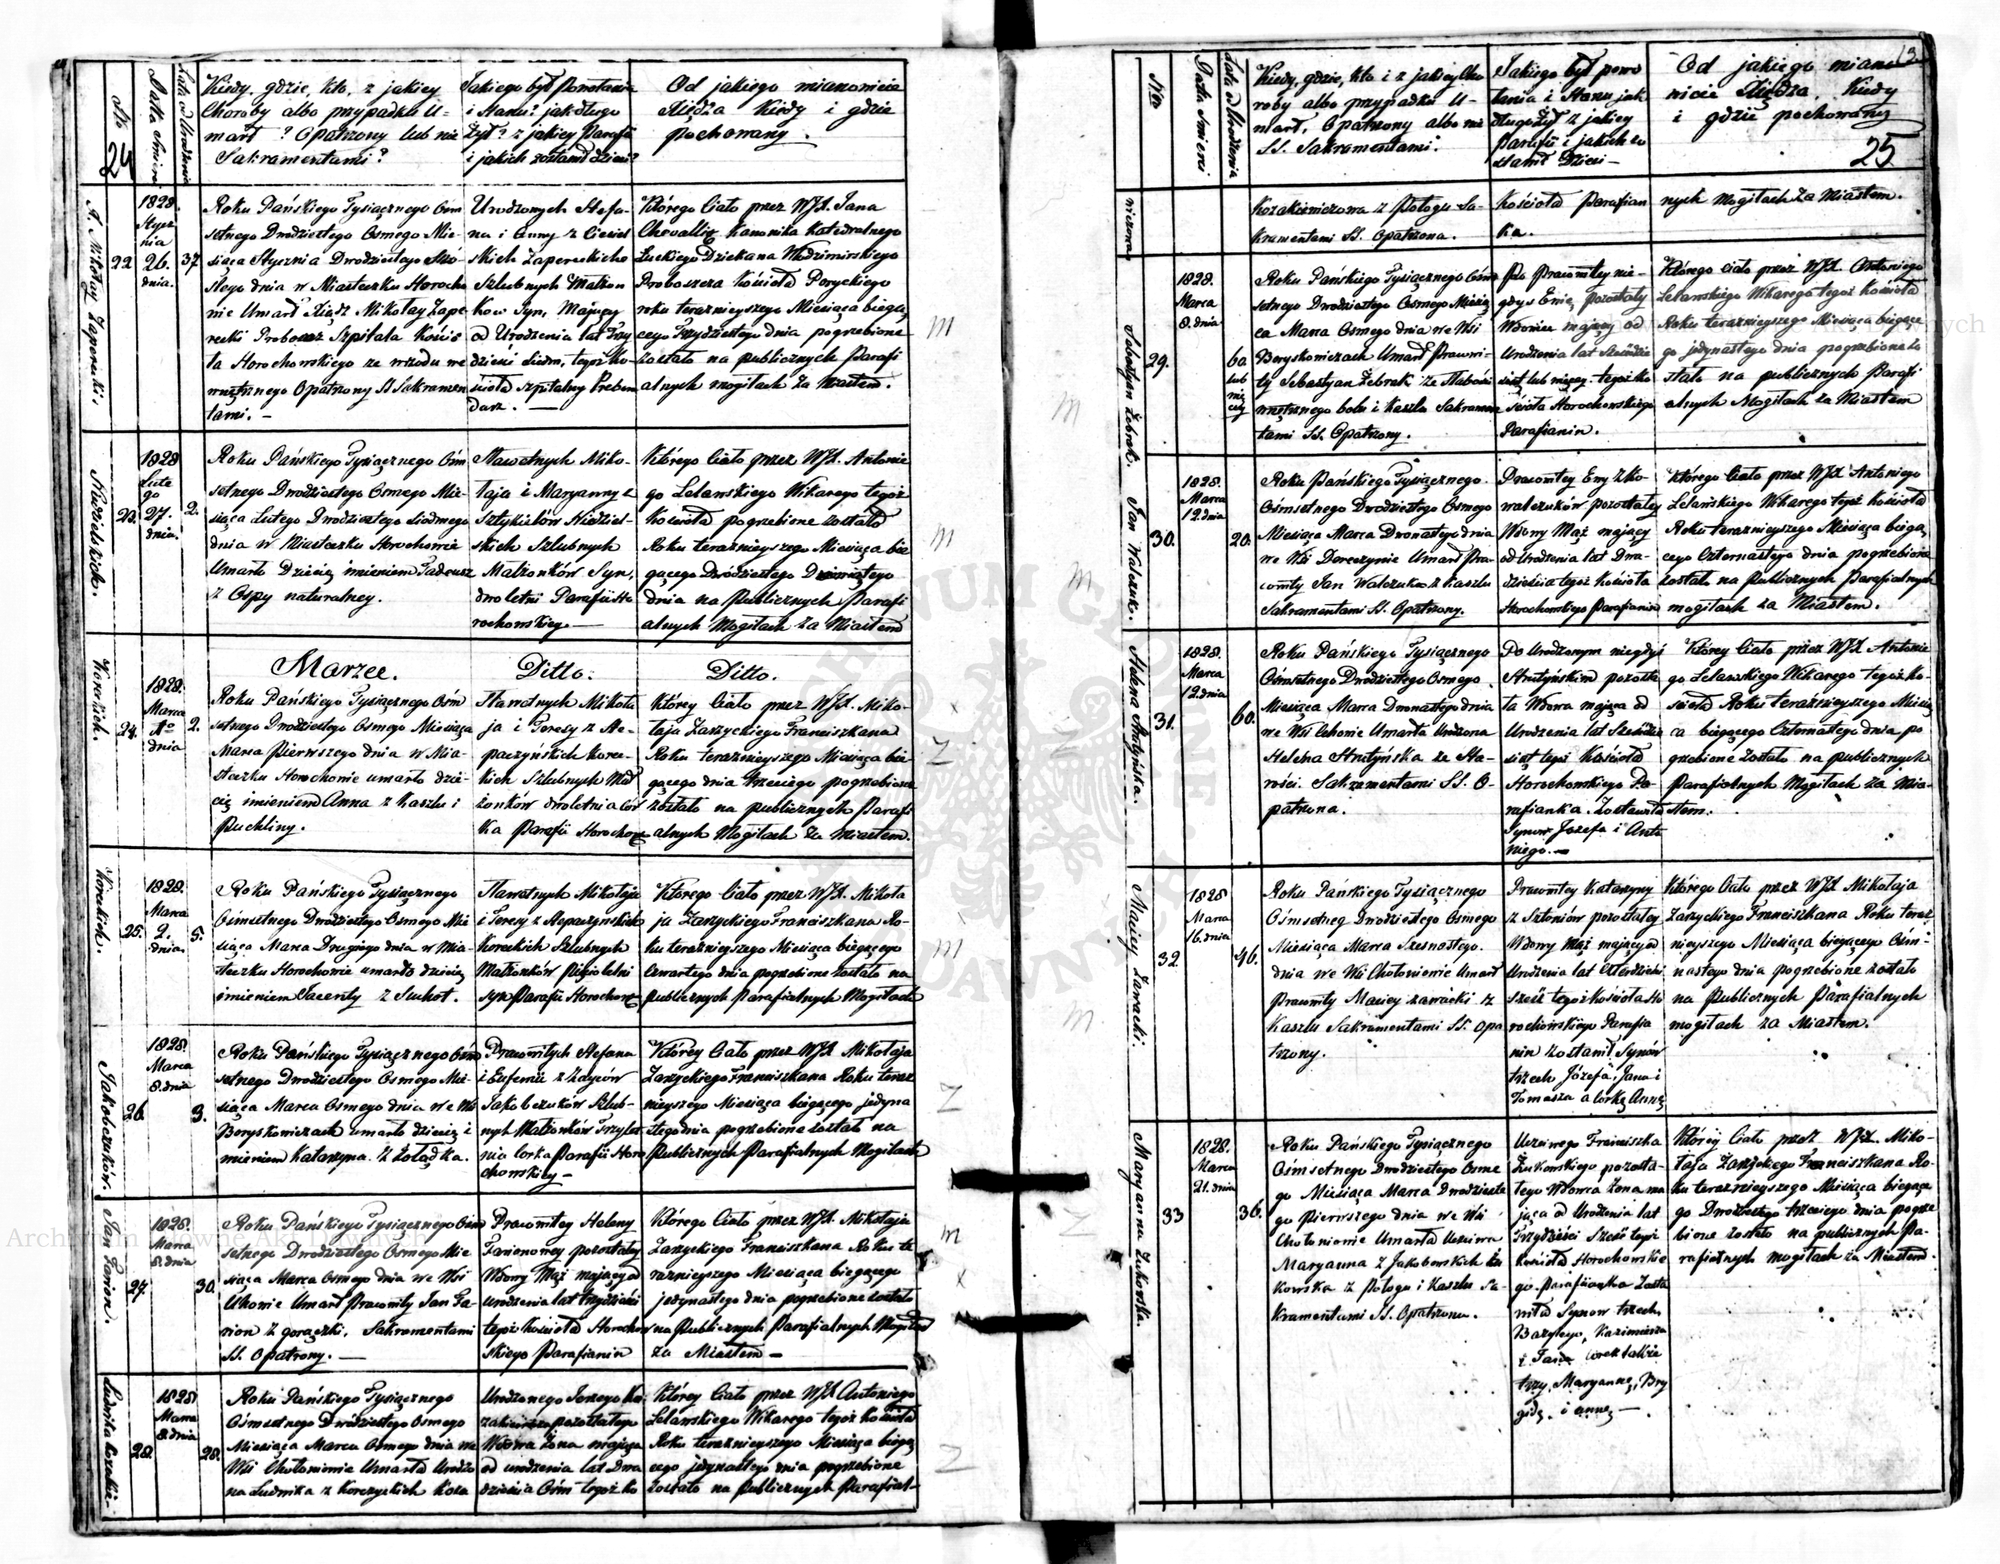 No
24
Datta Smierci
Lata od Urodzenia
Kiedy, gdzie, kto, z jakiey
Choroby albo przypadku U-
marł? Opatrzony lub nie
Sakramentami?
Jakiego był Powołania
i Stanu? jak długo
Żył? z jakiey Parafii
i jakich zostawił dzieci?
Od jakiego mianowicie
Xiędza Kiedy i gdzie
pochowany.
X. Mikołay Zaperecki.
22
1828.
Stycz
nia
26.
dnia.
37
Roku Pańskiego Tysiącznego Ośm
setnego Dwódziestego Osmego Mie-
siąca Stycznia Dwodziestego Szó-
stego dnia w Miasteczku Horocho
wie Umarł Xiądz Mikołay Zape
recki Proboszcz Szpitala Kościo
ła Horochowskiego ze wrzodu we
wnętrznego Opatrzony SS Sakramen
tami. -
Urodzonych Stefa-
na i Anny z Ciesiel
skich Zapereckich
Szlubnych Małżon
kow Syn, Maiący
od Urodzenia lat Trzy
dzieści siedm, tegoż Ko-
ścioła Szpitalny Preben
darz. —
Którego Ciało przez WJX. Jana
Chevallier Kanonika Katedralnego
Łuckiego Dziekana Włodzimirskiego
Proboszcza Kościoła Poryckiego
roku terazniejszego Miesiąca biegą
cego Trzydziestego dnia pogrzebione
zostało na publicznych Parafi
alnych mogiłach za Miastem.
Niedzielskich.
23.
1828
Lute
go
27.
dnia.
2.
Roku Pańskiego Tysiącznego Ośm
setnego Dwodziestego Osmego Mie-
siąca Lutego Dwodziestego siodmego
dnia w Miasteczku Horochowie
Umarło Dziecię imieniem Tadeusz
z Ospy naturalney.
Sławetnych Miko-
łaja i Maryanny z
Sztykielów Niedziel-
skich Szlubnych
Małżonków Syn,
dwóletni Parafii Ho
rochowskiey. —
Którego Ciało przez WJX. Antonie
go Lelawskiego Wikarego tegoż
Kościoła pogrzebione zostało
Roku terazniejszego Miesiąca bie
gącego Dwodziestego Dziewiątego
dnia na Publicznych Parafi
alnych Mogiłach za Miastem
Marzec.
Ditto.
Ditto.
Koreckich.
24.
1828.
Marca
1go
dnia
2.
Roku Pańskiego Tysiącznego Ośm
setnego Dwodziestego Osmego Miesiąca
Marca Pierwszego dnia w Mia-
steczku Horochowie umarło dzie-
cię imieniem Anna z Kaszlu i
Puchliny.
Sławetnych Mikoła
ja i Teresy z Ste-
paczyńskich Korec-
kich Szlubnych Mał
żonków dwoletnia Cór
ka Parafii Horochow
Którey Ciało przez WJX. Miko-
łaja Zarzyckiego Franciszkana
Roku terazniejszego Miesiąca bie-
gącego dnia trzeciego pogrzebione
zostało na publicznych Parafi
alnych Mogiłach za Miastem.
Koreckich.
25.
1828.
Marca
2.
dnia.
5.
Roku Pańskiego Tysiącznego
Ośmsetnego Dwodziestego Osmego Mie
siąca Marca Drugiego dnia w Mia
steczku Horochowie umarło dziecię
imieniem Jacenty z Suchot.
Sławetnych Mikołaja
i Teresy z Stepaczyńskich
Koreckich Szlubnych
Małżonków Pięcioletni
syn Parafii Horochow
Którego Ciało przez WJX. Mikoła
ja Zarzyckiego Franciszkana Ro-
ku terazniejszego Miesiąca biegącego
Czwartego dnia pogrzebione zostało na
publicznych Parafialnych Mogiłach
Jakobczuków.
26.
1828.
Marca
8. dnia
3.
Roku Pańskiego Tysiącznego Ośm
setnego Dwodziestego Osmego Mie-
siąca Marca Osmego dnia we Wsi
Beryskowiczach umarło dziecię i
mieniem Katarzyna z Żołądka.
Pracowitych Stefana
i Eufemii z Zdyców
Jakobczuków Szlub-
nych Małżonków Trzylet
nia Corka Parafii Horo
chowskiey —
Którey Ciało przez WJX. Mikołaja
Zarzyckiego Franciszkana Roku teraz
nieyszego Miesiąca biegącego jedyna
stego dnia pogrzebione zostało na
Publicznych Parafialnych Mogiłach
Jan Farion.
27.
1828.
Marca
8. dnia
30.
Roku Pańskiego Tysiącznego Ośm
setnego Dwodziestego Osmego Mie
siąca Marca Osmego dnia we Wsi
Uhowie Umarł Pracowity Jan Fa-
rion z gorączki. Sakramentami
SS. Opatrzony. —
Pracowitey Heleny
Farionowey pozostały
Wdowy Mąż mający od
urodzenia lat trzydzieści
tegoż Kościoła Horochow
skiego Parafianin
Którego Ciało przez WJX. Mikołaja
Zarzyckiego Franciszkana Roku te
razniejszego Miesiąca biegącego
jedynastego dnia pogrzebione zostało
na Publicznych Parafialnych Mogiłach
za Miastem —
28.
1828
Marca
8. dnia
28.
Roku Pańskiego Tysiącznego
Ośmsetnego Dwodziestego Osmego
Miesiąca Marca Osmego dnia we
Wsi Chołoniowie Umarła Urodzo
na Ludwika z Korczyckich Koza
Urodzonego Jerzego Ko-
zakiewicza pozostałego
Wdowca Żona mająca
od urodzenia lat Dwa
dzieścia Ośm tegoż Ko
Którey Ciało przez WJX Antoniego
Lelawskiego Wikarego tegoż Kościoła
Roku terazniejszego Miesiąca biegą
cego jedynastego dnia pogrzebione
zostało na Publicznych Parafial-
Nro
Datta Smierci
Lata od Urodzenia
Kiedy, gdzie, kto i z jakiey Cho
roby albo przypadku U-
marł, Opatrzony albo nie
SS. Sakramentami.
Jakiego był powo
łania i Stanu, jak
długo Żył z jakiey
Parafii i jakich zo
stawił Dzieci —
Od jakiego miano
wicie Xiędza, Kiedy
i gdzie pochowany
25
Kozakiewiczowa z Połogu Sa-
kramentami SS. Opatrzona.
Kościoła Parafian
ka.
nych Mogiłach za Miastem.
Sebastyan Żebrak.
29.
1828.
Marca
8. dnia
60.
lub
wię
cey
Roku Pańskiego Tysiącznego Ośm
setnego Dwodziestego Osmego Miesią
ca Marca Osmego dnia we Wsi
Beryskowiczach Umarł Pracowi-
ty Sebastyan Żebrak ze Słabości
wnętrznego bolu i Kaszlu Sakramen
tami SS. Opatrzony.
Po Pracowitey nie-
gdys Ewie, pozostały
Wdowiec mający od
Urodzenia lat Sześćdzie
siąt lub więcey. tegoż Ko
ścioła Horochowskiego
Parafianin.
Którego Ciało przez WJX. Antoniego
Lelawskiego Wikarego tegoż Kościoła
Roku terazniejszego Miesiąca biegące
go jedynastego dnia pogrzebione zo
stało na publicznych Parafi
alnych Mogiłach za Miastem
Jan Walczuk.
30.
1828.
Marca
12. dnia
20.
Roku Pańskiego Tysiącznego
Ośmsetnego Dwodziestego Osmego
Miesiąca Marca Dwónastego dnia
we Wsi Umarł Pra-
cowity Jan Walczuk z Kaszlu
Sakramentami SS. Opatrzony.
Pracowitey Ewy z Ko-
walczuków pozostałey
Wdowy Mąż mający
od Urodzenia lat Dwa-
dzieścia tegoż Kościoła
Horochowskiego Parafianin
Którego Ciało przez WJX Antoniego
Lelawskiego Wikarego tegoż Kościoła
Roku terazniejszego Miesiąca biegą
cego Czternastego dnia pogrzebione
zostało na Publicznych Parafialnych
mogiłach za Miastem.
31.
1828.
Marca
12. dnia
60.
Roku Pańskiego Tysiącznego
Ośmsetnego Dwodziestego Osmego
Miesiąca Marca Dwonastego dnia
we Wsi Umarła Urodzona
Helena ze Sta-
rości Sakramentami SS. O-
patrzona.
Po Urodzonym niegdyś
pozosta
ła Wdowa mająca od
Urodzenia lat Sześćdzie
siąt tegoż Kościoła
Horochowskiego Pa-
rafianka. Zostawiła
Synow Jozefa i Anto
niego. —
Którey Ciało przez WJX Antonie
go Lelawskiego Wikarego tegoż Ko-
ścioła Roku terazniejszego Miesią
ca biegącego Czternastego dnia po
grzebione zostało na publicznych
Parafialnych Mogiłach za Mia-
stem.
Maciey Zawacki.
32.
1828
Marca
16. dnia
46.
Roku Pańskiego Tysiącznego
Ośmsetneg Dwodziestego Osmego
Miesiąca Marca Szesnastego
dnia we Wsi Chołoniowie Umarł
Pracowity Maciey Zawacki z
Kaszlu Sakramentami SS. Opa
trzony.
Pracowitey Katarzyny
z Sztoniów pozostałey
Wdowy Mąż mający od
Urodzenia lat Czterdzieści
sześć tegoż Kościoła Ho
rochowskiego Parafia
nin Zostawił Synów
trzech Józefa, Jana i
Tomasza a Corkę Annę
Którego Ciało przez WJX Mikołaja
Zarzyckiego Franciszkana Roku teraz
nieyszego Miesiąca biegącego Ośm-
nastego dnia pogrzebione zostało
na Publicznych Parafialnych
mogiłach za Miastem.
Maryanna Żukowska.
33
1828.
Marca
21. dnia
36.
Roku Pańskiego Tysiącznego
Ośmsetnego Dwodziestego Osme
go Miesiąca Marca Dwodzieste
go Pierwszego dnia we Wsi
Chołoniowie Umarła Uczciwa
Maryanna z Jakobowskich Żu
kowska z Połogu i Kaszlu Sa-
kramentami SS. Opatrzona.
Uczciwego Franciszka
Żukowskiego pozosta-
łego Wdowca Żona ma
jąca od Urodzenia lat
Trzydzieści Sześć tegoż
Kościoła Horochowskie
go Parafianka Zosta
wiła Synow trzech,
Bazylego, Kazimierza
i Jana Corek także
trzy, Maryannę, Bry
gidę. i Annę —
Którey Ciało przez WJX. Miko-
łaja Zarzyckiego Franciszkana Ro-
ku terazniejszego Miesiąca biegące
go Dwodziestego trzeciego dnia pogrze
bione zostało na publicznych Pa-
rafialnych mogiłach za Miastem
Archiwum Główne Akt Dawnych